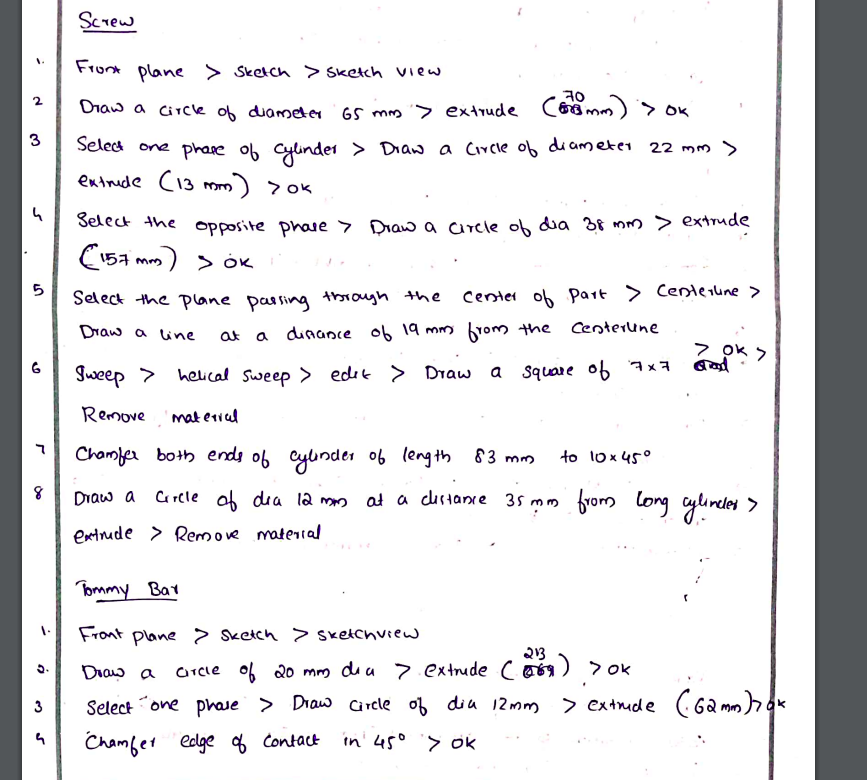 Screw
1. Front plane > sketch > sketch view
2 Draw a circle of diameter 65 mm > extrude (70 mm) > ok
3 Select one phase of cylinder > Draw a circle of diameter 22 mm >
extrude (13 mm) > ok
4 Select the opposite phase > Draw a circle of dia 38 mm > extrude
(157 mm) > ok
5 Select the plane passing through the center of part > Centerline >
Draw a line at a distance of 19 mm from the centerline
6 Sweep > helical sweep > edit > Draw a square of 7x7 > ok >
Remove material
7 Chamfer both ends of cylinder of length 83 mm to 10x45°
8 Draw a circle of dia 12 mm at a distance 35 mm from long cylinder >
extrude > Remove material
Tommy Bar
1. Front plane > sketch > sketchview
2. Draw a circle of 20 mm dia > extrude (213) > ok
3 Select one phase > Draw circle of dia 12mm > extrude (62 mm) > ok
4 Chamfer edge of contact in 45° > ok